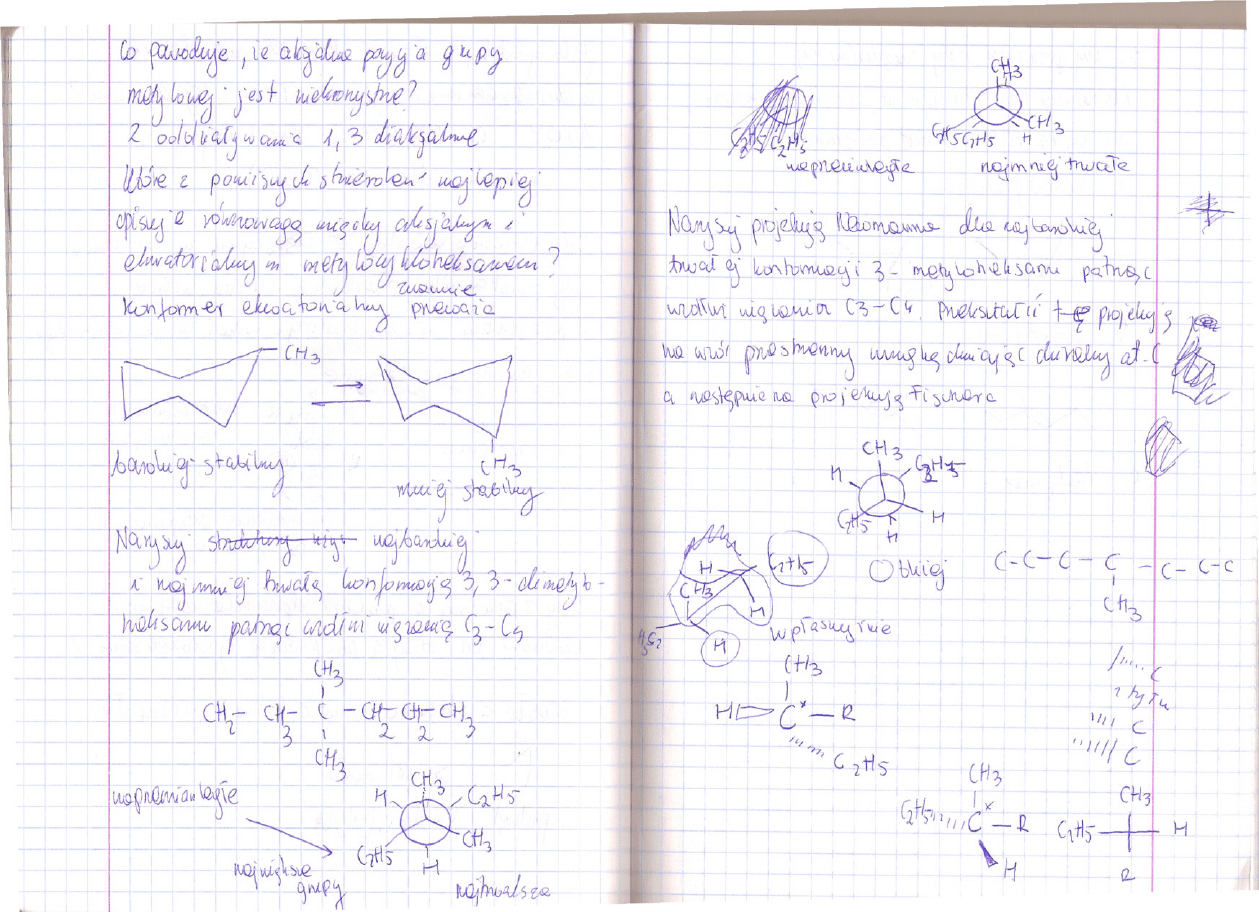 Co powoduje, że aksjalna pozycja grupy
metylowej jest niekorzystne?
2 oddziaływania 1,3 diaksjalne
Które z poniższych stwierdzeń najlepiej
opisuje równowagę między aksjalnym i
ekwatorialnym metylocykloheksanem?
znacznie
Konformer ekwatorialny przeważa
CH3
bardziej stabilny
CH3
mniej stabilny
Narysuj najbardziej
i najmniej trwałą konformację 3,3-dimetylo-
heksanu patrząc wzdłuż wiązania C3-C4
CH3
CH2- CH3- C -CH2-CH2-CH3
CH3
naprzemianległe
CH3
H
C2H5
C2H5
CH3
H
największe
grupy
najtrwalsze
CH3
H
C2H5 C2H5
C2H5 C2H5
CH3
H
naprzeciwległe
najmniej trwałe
Narysuj projekcję Newmanna dla najbardziej
trwałej konformacji 3-metyloheksanu patrząc
wzdłuż wiązania C3-C4. Przekształć tę projekcję
na wzór przestrzenny uwzględniając chiralny at. C
a następnie na projekcję Fischera
CH3
H
C2H5
C2H5
H
H
H
C2H5
CH3
H
H5C2
H
bliżej
w płaszczyźnie
C-C-C-C-C-C-C
CH3
C
z tyłu
C
C
CH3
H
C* - R
C2H5
CH3
C2H5
C* - R
H
CH3
C2H5
H
R